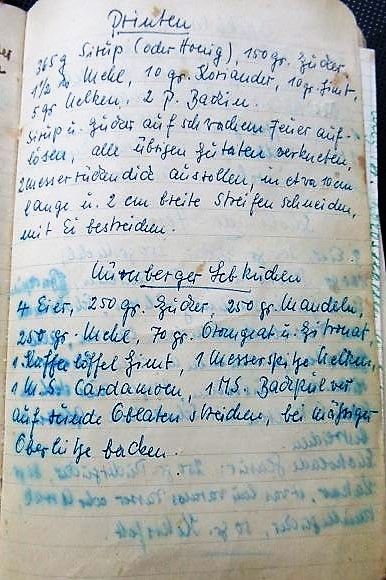 Printen
365g Sirup (oder Honig), 150 gr. Zucker
1 1/2 lb Mehl, 10 gr. Koriander, 10 gr. Zimt,
5 gr Nelken, 2 P. Backin.
Sirup u. Zucker auf schwachem Feuer auf-
lösen, alle übrigen Zutaten verkneten.
2 messerrückendick ausrollen, in etwa 10 cm
lange u. 2 cm breite Streifen schneiden,
mit Ei bestreichen.
Nürnberger Lebkuchen
4 Eier, 250 gr. Zucker, 250 gr. Mandeln,
250 gr. Mehl, 70 gr. Orangeat u. Zitronat
1 Kaffeelöffel Zimt, 1 Messerspitze Nelken,
1 M.S. Cardamom, 1 MS. Backpulver
auf runde Oblaten streichen, bei mässiger
Oberhitze backen.